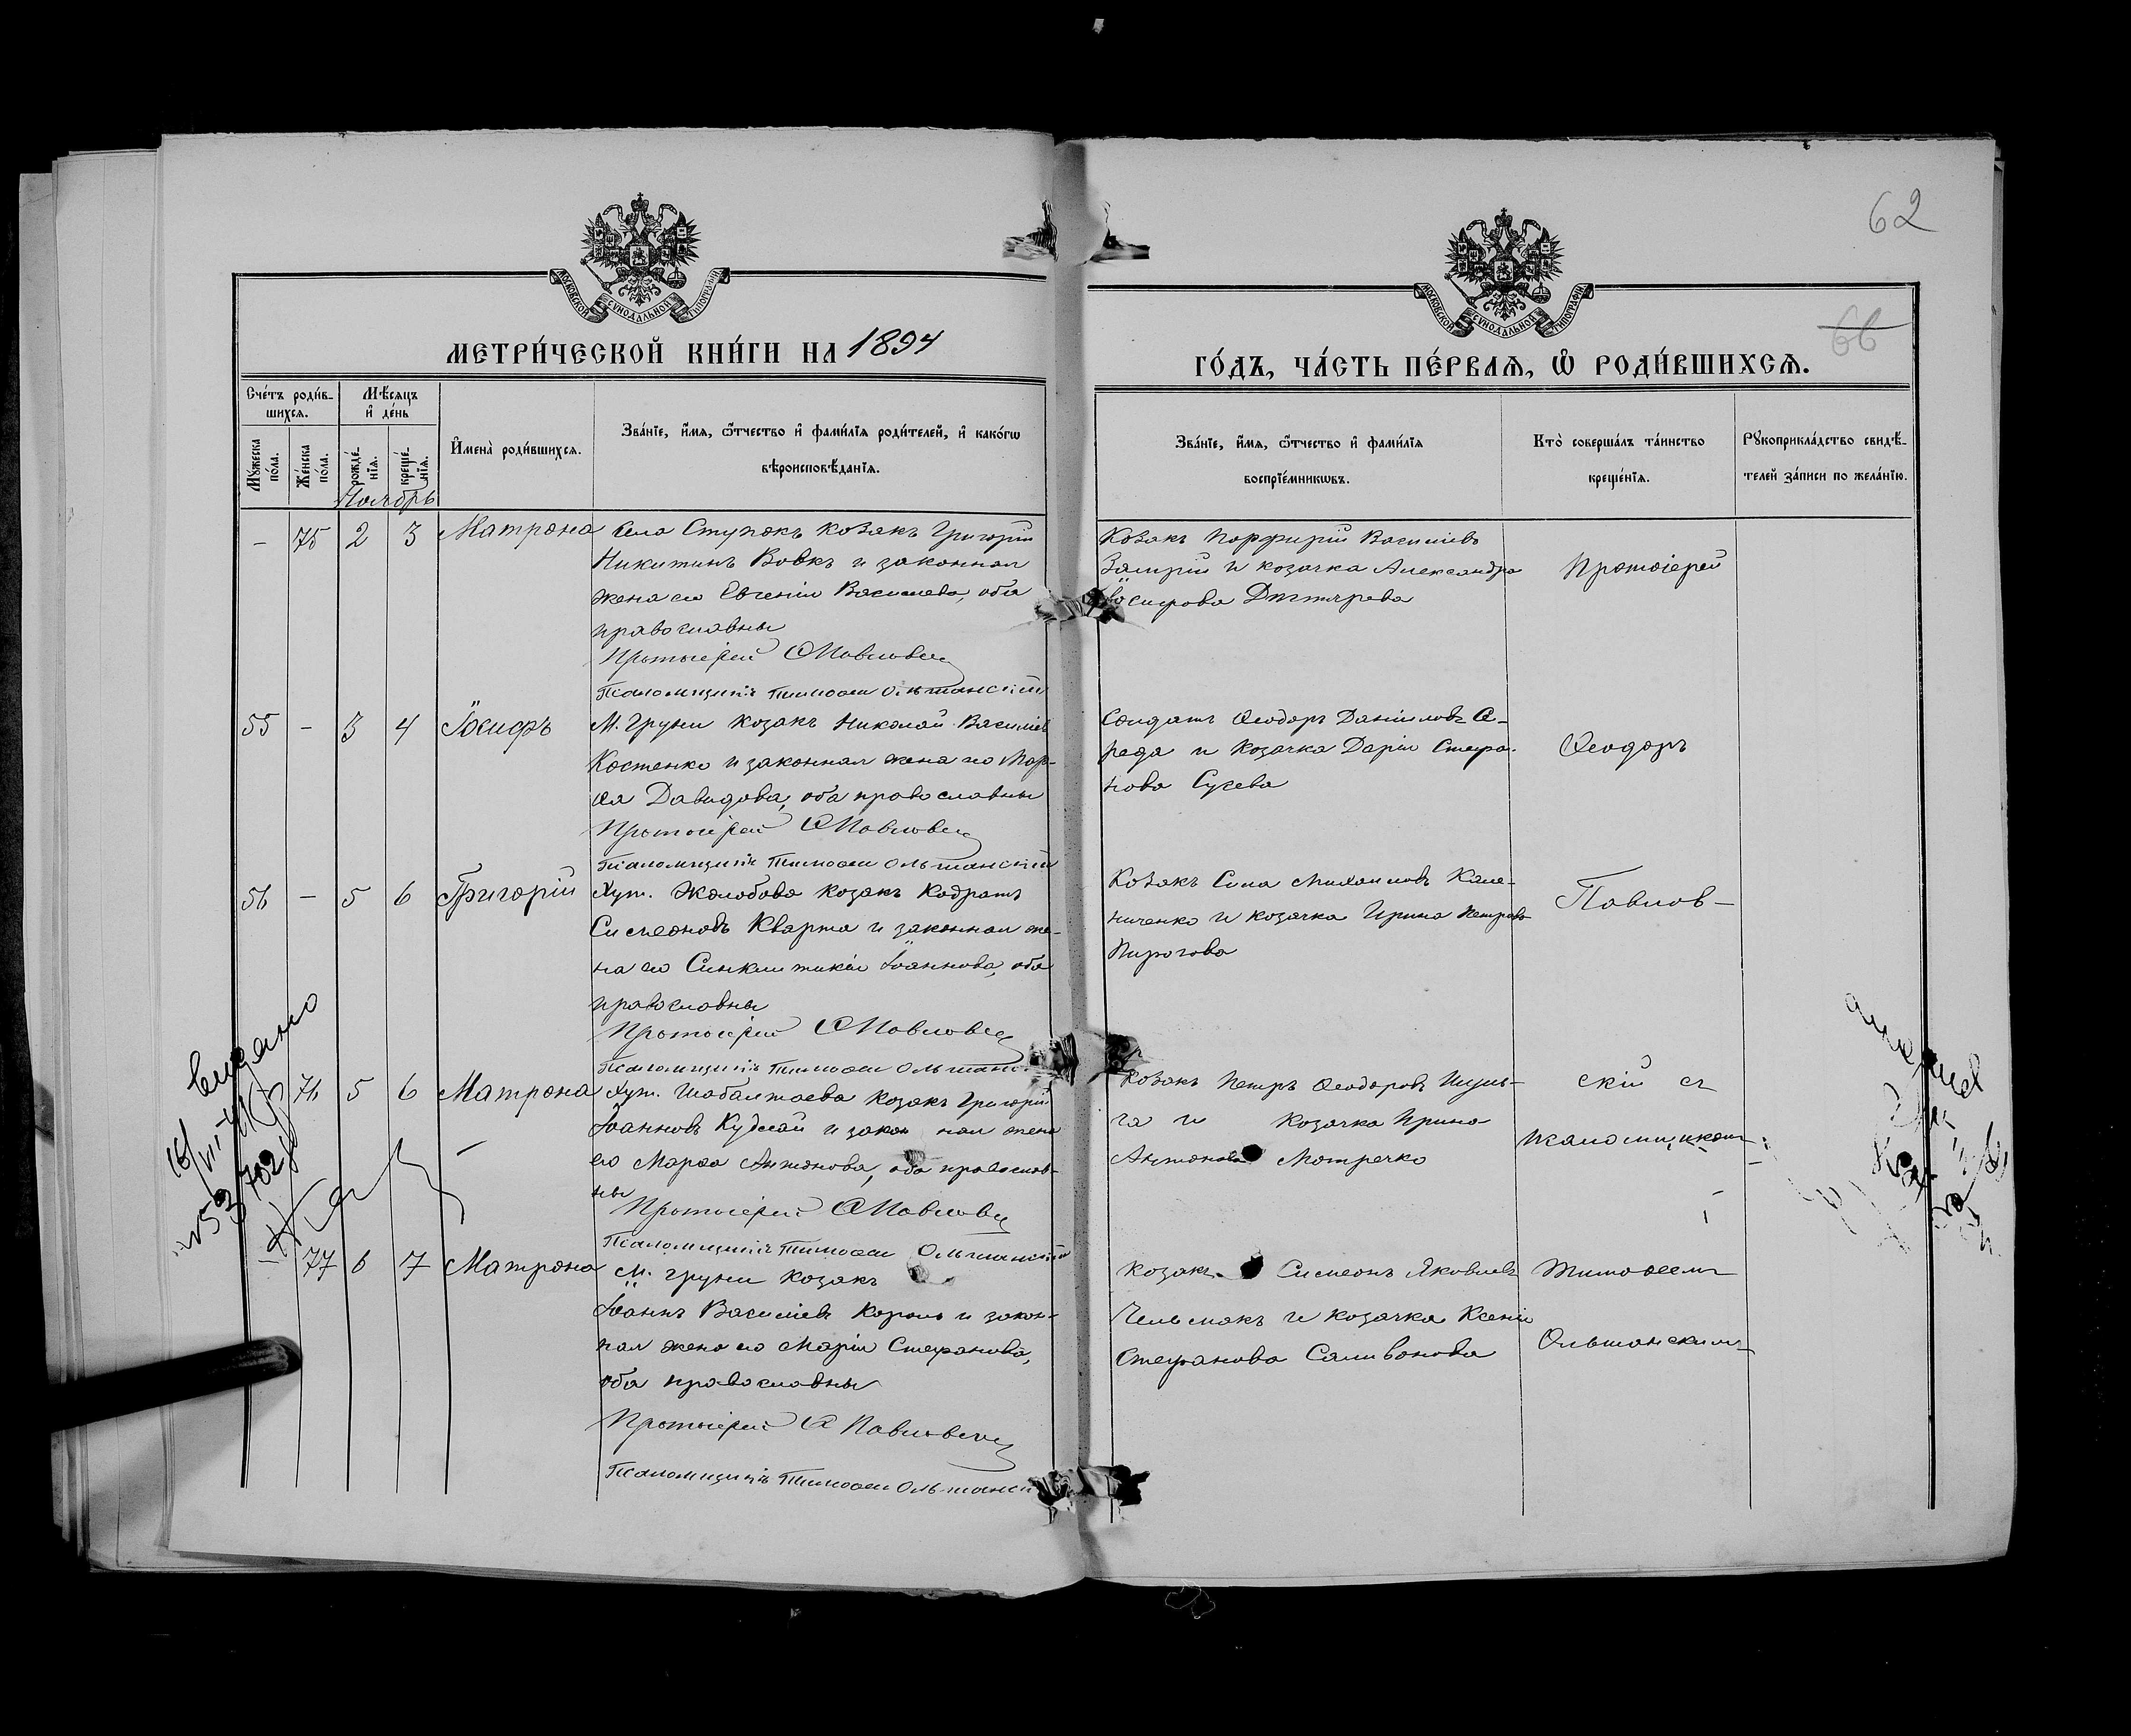 62
66
МОСКОВСКОЙ СѴНОДАЛЬНОЙ ТИПОГРАФІИ
МОСКОВСКОЙ СѴНОДАЛЬНОЙ ТИПОГРАФІИ
МЕТРИ́ЧЕСКОЙ КНИ́ГИ НА 1894
ГО́ДЪ, ЧА́СТЬ ПЕ́РВАѦ, Ѡ РОДИ́ВШИХСѦ.
Сче́тъ роди́в-
шихсѧ.
Мѣ́сѧцъ
и҆ де́нь
Мꙋ́жеска по́ла.
Же́нска по́ла.
рожде́-нїѧ.
креще́-нїѧ.
И҆мена̀ роди́вшихсѧ.
Зва́нїе, и҆́мѧ, ѻ҆́тчество и҆ фами́лїѧ роди́телей, и҆ како́гѡ
вѣроисповѣ́данїѧ.
Зва́нїе, и҆́мѧ, ѻ҆́тчество и҆ фами́лїѧ
воспрїе́мникѡвъ.
Кто̀ соверша́лъ та́инство
креще́нїѧ.
Рꙋкоприкла́дство свидѣ́-
телей за́писи по жела́нїю.
Ноябрь
– 75 2 3 Матрона
Села Ступокъ козакъ Григорій
Никитинъ Вовкъ и законная
жена его Евгенія Васильева, оба
православны
Протоіерей Павловскій
Псаломщикъ Тимоѳей Ольшанскій
Козакъ Порфирій Васильевъ
и козачка Александра
Іосифова Дегтярева
Протоіерей
55 – 3 4 Іосифъ
М. Груни козакъ Николай Васильевъ
Костенко и законная жена его Мар-
ѳа Давидова, оба православны
Протоіерей Павловскій
Псаломщикъ Тимоѳей Ольшанскій
Солдатъ Ѳеодоръ Даніиловъ Се-
реда и козачка Дарія Стефа-
нова Сусева
Ѳеодоръ
56 – 5 6 Григорій
Хут. Жолобова козакъ Кодратъ
Симеоновъ Кварта и законная же-
на его Синклитикія Іоаннова, оба
православны
Протоіерей Павловскій
Псаломщикъ Тимоѳей Ольшанскій
Козакъ Сила Михаиловъ Кале-
ниченко и козачка Ирина Петрова
Пирогова
Павлов-
76 5 6 Матрона
Хут. Шабалтаева козакъ Григорій
Іоанновъ Кудлай и законная жена
его Марѳа Антонова, оба православ-
ны
Протоіерей Павловскій
Псаломщикъ Тимоѳей Ольшанскій
Козакъ Петръ Ѳеодоровъ Шуль-
га и козачка Ирина
Антонова Мотречко
скій съ
псаломщикомъ
77 6 7 Матрона
М. Груни козакъ
Іоаннъ Васильевъ Король и закон-
ная жена его Марія Стефанова,
оба православны
Протоіерей Павловскій
Псаломщикъ Тимоѳей Ольшанскій
Козакъ Симеонъ Яковлевъ
Чельмакъ и козачка Ксенія
Стефанова Саливонова
Тимоѳеемъ
Ольшанскимъ
видано